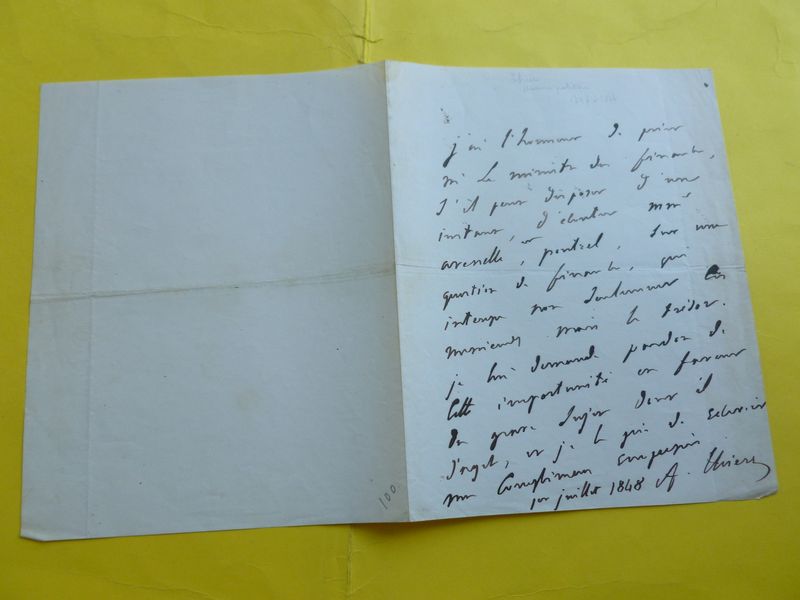 j'ai l'honneur de prier
M. le ministre des finances,
s'il peut disposer d'un
instant, d'écouter MM.
et, sur une
question de finances, qui
intéresse non seulement ces
messieurs mais le trésor.
je lui demande pardon de
cette importunité en faveur
du grave sujet dont il
s'agit, et je le prie de recevoir
mes compliments empressés
1er juillet 1848 A. Thiers
100